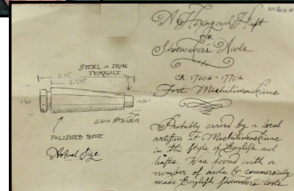 A Hexagonal Haft
for
Shoemaker's Awls
CA 1760s - 1770s
Fort Michilimackinac
STEEL or IRON
FERRULE
POLISHED BONE
Actual Size
Probably carved by a local
artificer at Michilimackinac
in the style of English awl
hafts. Was found with a
number of awls & commercially
made English shoemakers tools.